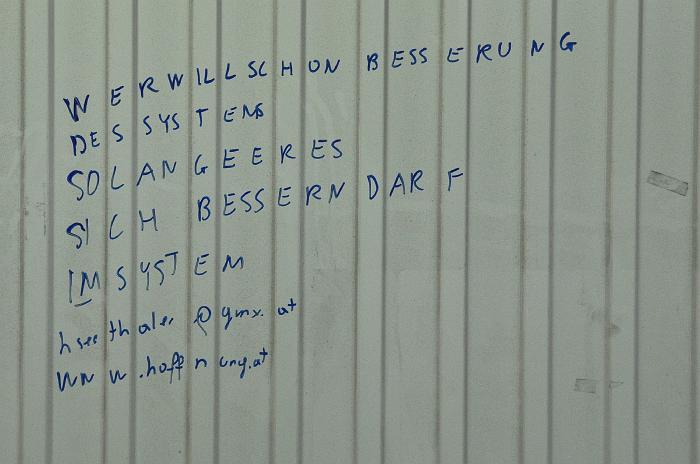 WER WILL SCHON BESSERUNG
DES SYSTEMS
SOLANGE ER ES
SICH BESSERN DARF
IM SYSTEM
hseethaler@gmx.at
www.hoffnung.at